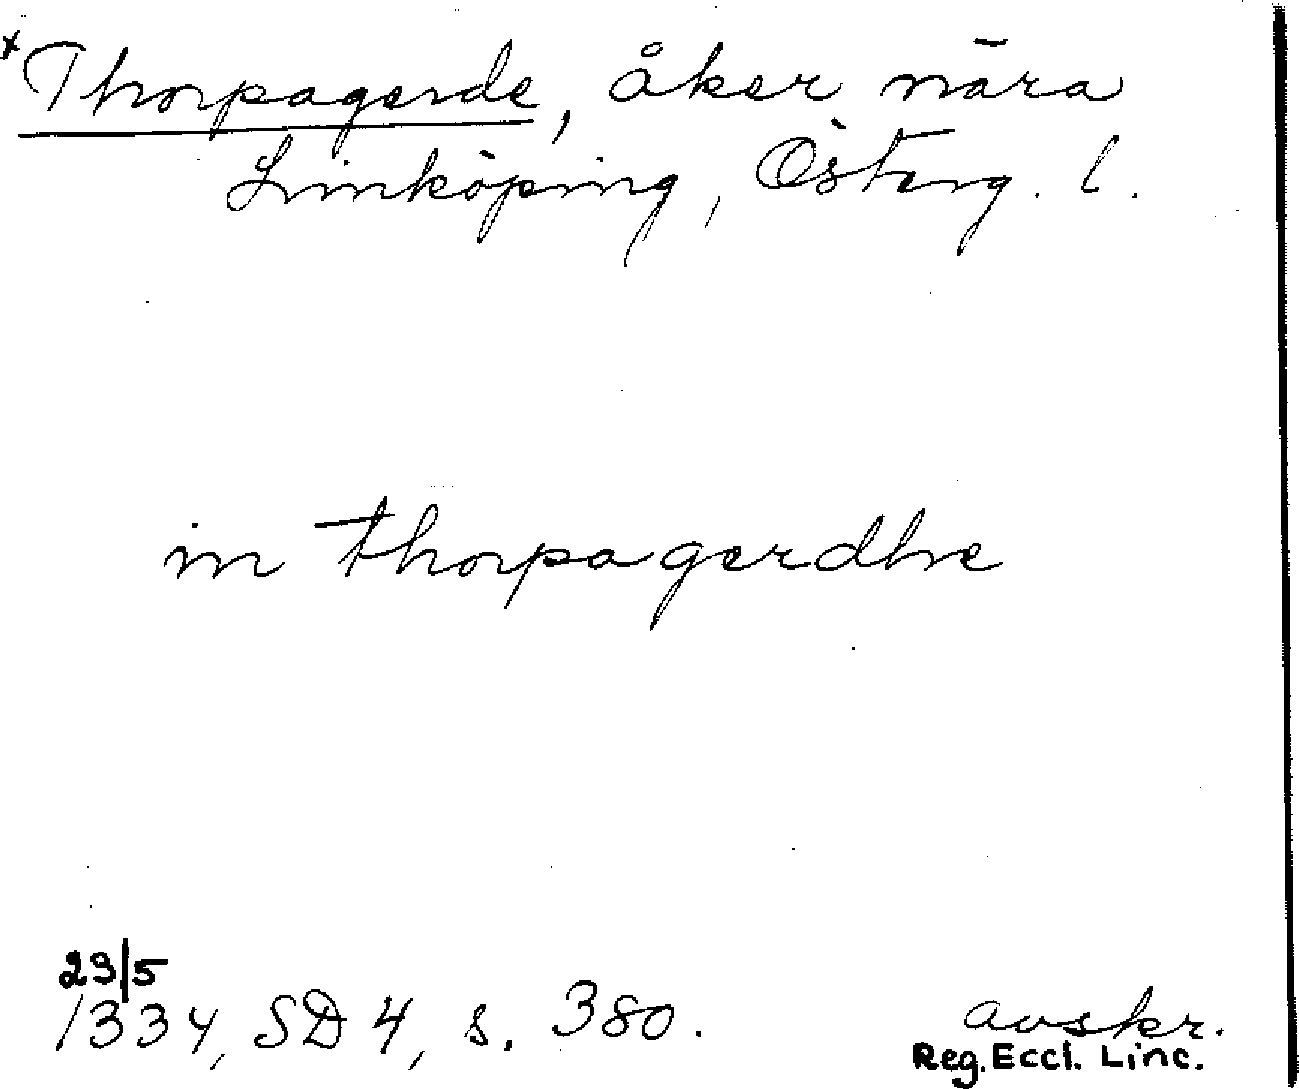 *Thorpagerde, åker nära
Linköping, Österg. l.
in thorpagerdhe
23/5
1334, SD 4, s. 380.
avskr.
Reg. Eccl. Linc.